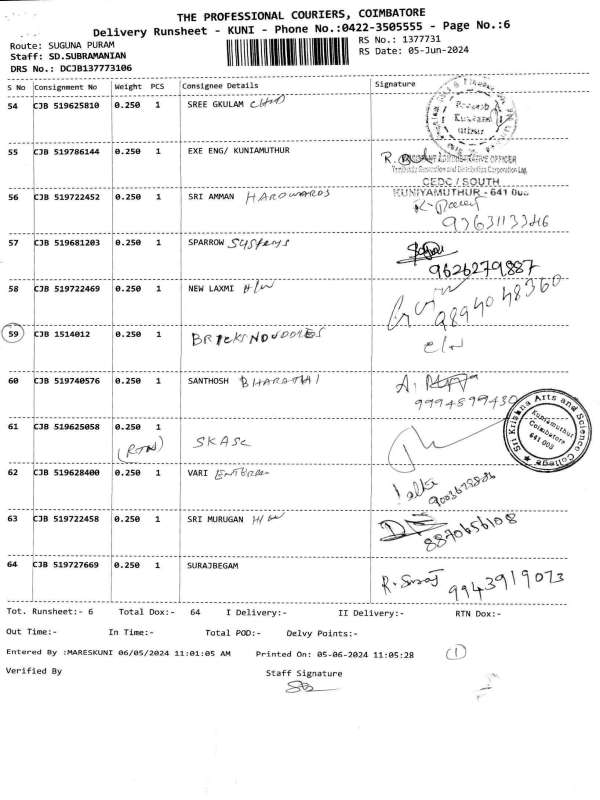 THE PROFESSIONAL COURIERS, COIMBATORE
Delivery Runsheet - KUNI - Phone No.:0422-3505555 - Page No.:6
Route: SUGUNA PURAM
RS No.: 1377731
Staff: SD.SUBRAMANIAN
RS Date: 05-Jun-2024
DRS No.: DCJB137773106
S No Consignment No Weight PCS Consignee Details Signature
54 CJB 519625810 0.250 1 SREE GKULAM
55 CJB 519786144 0.250 1 EXE ENG/ KUNIAMUTHUR
CEDC / SOUTH
KUNIYAMUTHUR - 641
56 CJB 519722452 0.250 1 SRI AMMAN HARDWARDS
9363113326
57 CJB 519681203 0.250 1 SPARROW Systems
9626279887
58 CJB 519722469 0.250 1 NEW LAXMI H/W
9894048360
59 CJB 1514012 0.250 1 BRICKSNOUDDLES
60 CJB 519740576 0.250 1 SANTHOSH BHARATHAI
9994899430
61 CJB 519625058 0.250 1 SKASC
(RTN)
Sri Krishna Arts and Science College
Kuniamuthur
Coimbatore
641 008
62 CJB 519628400 0.250 1 VARI
63 CJB 519722458 0.250 1 SRI MURUGAN H/W
8870656108
64 CJB 519727669 0.250 1 SURAJBEGAM
R. Suraj 9943919073
Tot. Runsheet:- 6 Total Dox:- 64 I Delivery:- II Delivery:- RTN Dox:-
Out Time:- In Time:- Total POD:- Delvy Points:-
Entered By :MARESKUNI 06/05/2024 11:01:05 AM Printed On: 05-06-2024 11:05:28 1
Verified By Staff Signature